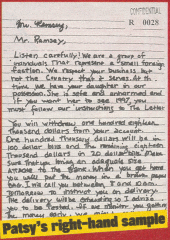 CONFIDENTIAL
R 0028
Mr. Ramsey,
Mr. Ramsey,
Listen carefully! We are a group of
individuals that represent a small foreign
faction. We respect your business but
not the country that it serves. At this
time we have your daughter in our
possession. She is safe and unharmed and
if you want her to see 1997, you
must follow our instructions to the letter
You will withdraw one hundred eighteen
thousand dollars from your account.
One hundred thousand dollars will be in
100 dollar bills and the remaining eighteen
thousand dollars in 20 dollar bills. Make
sure that you bring an adequate size
attache to the bank. When you get home
you will put the money in a brown paper
bag. I will call you between 8 and 10 am
tomorrow to instruct you on delivery.
The delivery will be exhausting so I advise
you to be rested. If we monitor you getting
the money early, we
Patsy's right-hand sample